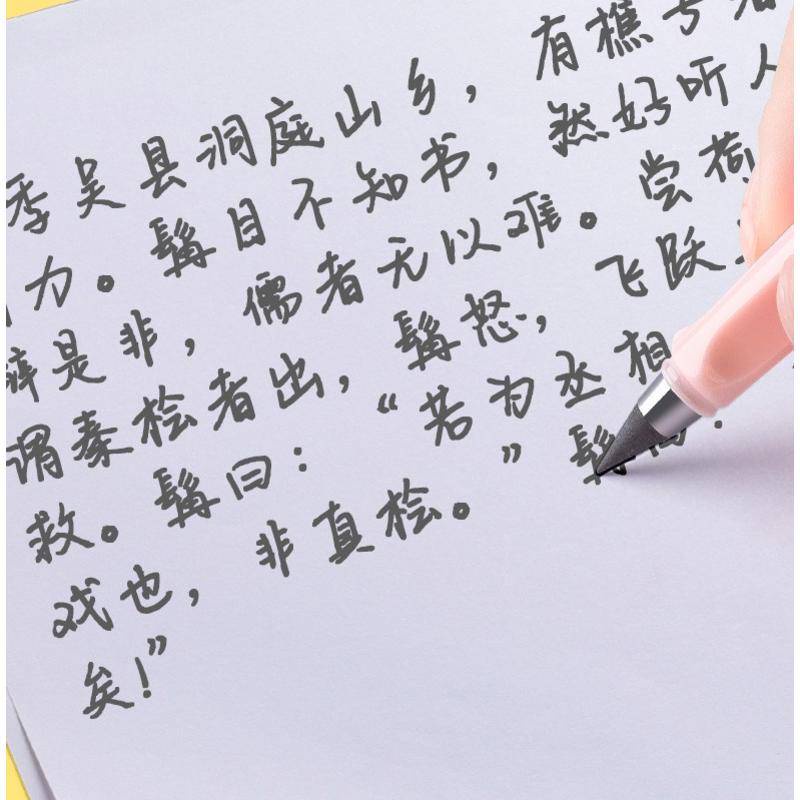 季吴县洞庭山乡，有樵
力。髯目不知书，然好听人
辩是非，儒者无以难。尝荷
谓秦桧者出，髯怒，飞跃
救。髯曰：“若为丞相
戏也，非真桧。”髯曰：
矣！”